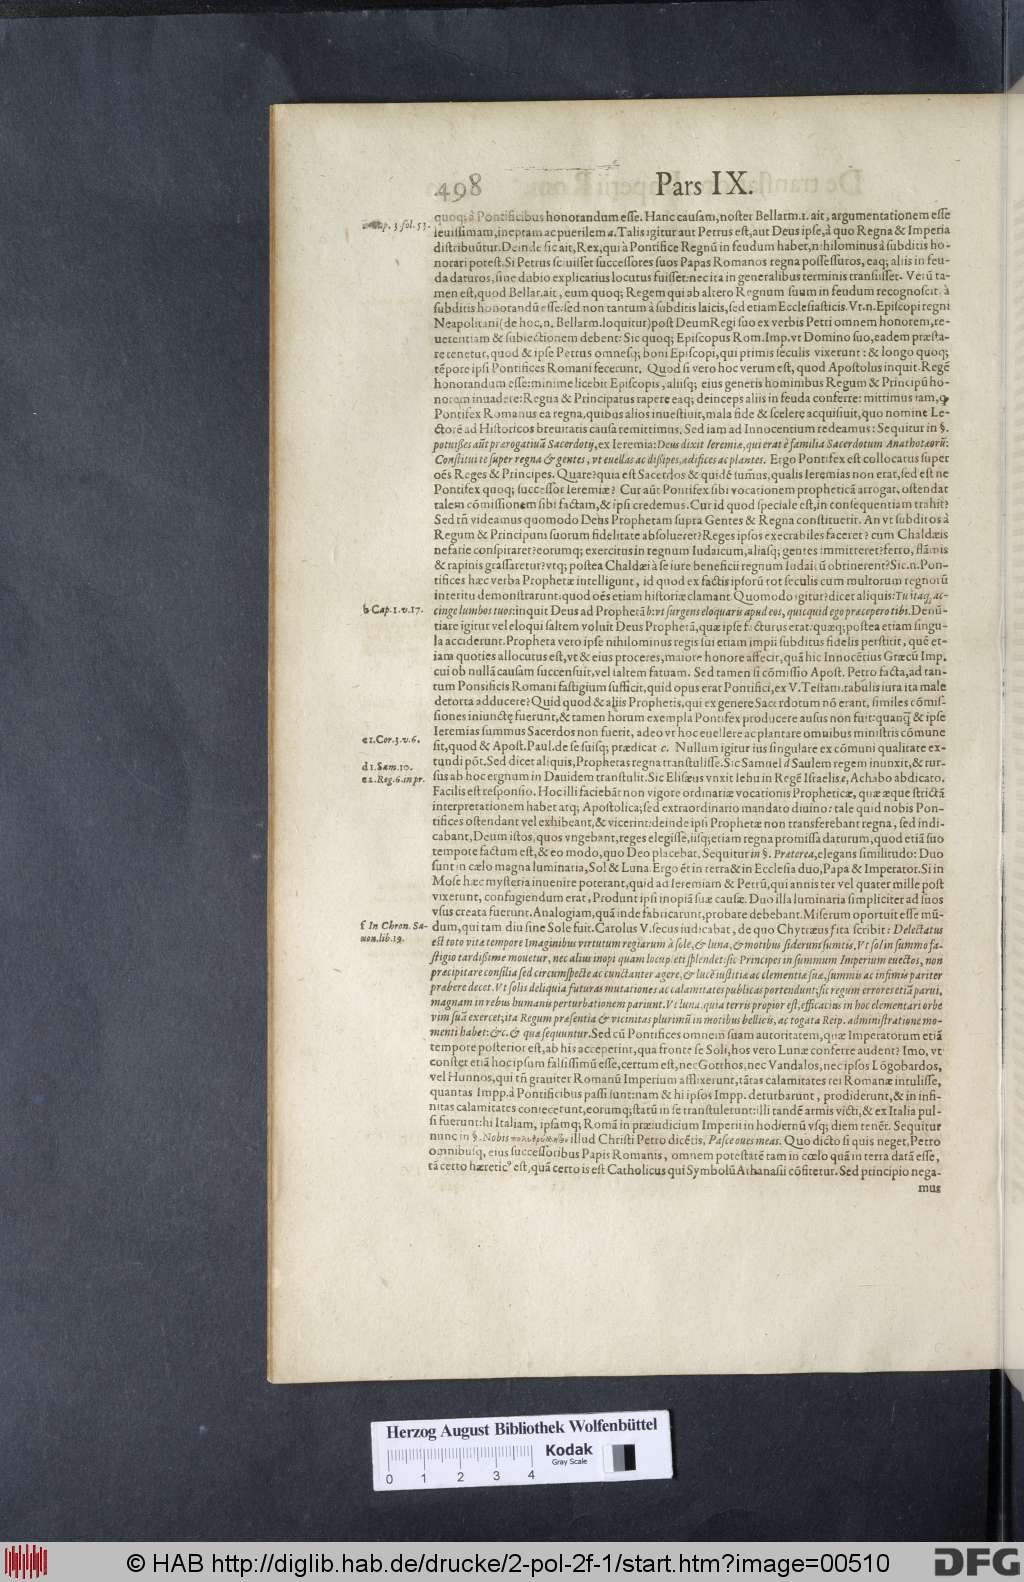 498 Pars IX.
quoq; à Pontificibus honorandum esse. Hanc causam, noster Bellarm. 1. ait, argumentationem esse
leuissimam, ineptam ac puerilem a. Talis igitur aut Petrus est, aut Deus ipse, à quo Regna & Imperia
a Cap. 3. fol. 53.
distribuũtur. Deinde sic ait, Rex, qui à Pontifice Regnũ in feudum habet, nihilominus à subditis ho-
norari potest. Si Petrus sciuisset successores suos Papas Romanos regna possessuros, eaq; aliis in feu-
da daturos, sine dubio explicatius locutus fuisset: nec ita in generalibus terminis transisset. Verũ ta-
men est, quod Bellar. ait, eum quoq; Regem qui ab altero Regnum suum in feudum recognoscit, à
subditis honorandũ esse: sed non tantum à subditis laicis, sed etiam Ecclesiasticis. Vt. n. Episcopi regni
Neapolitani (de hoc. n. Bellarm. loquitur) post Deum Regi suo ex verbis Petri omnem honorem, re-
uerentiam & subiectionem debent: Sic quoq; Episcopus Rom. Imp. vt Domino suo, eadem præsta-
re tenetur, quod & ipse Petrus omnesq; boni Episcopi, qui primis seculis vixerunt: & longo quoq;
tẽpore ipsi Pontifices Romani fecerunt. Quod si vero hoc verum est, quod Apostolus inquit. Regẽ
honorandum esse: minime licebit Episcopis, aliisq; eius generis hominibus Regum & Principũ ho-
norem inuadere: Regna & Principatus rapere eaq; deinceps aliis in feuda conferre: mittimus iam, ꝙ
Pontifex Romanus ea regna, quibus alios inuestiuit, mala fide & scelere acquisiuit, quo nomine Le-
ctorẽ ad Historicos breuitatis causa remittimus. Sed iam ad Innocentium redeamus: Sequitur in §.
potuisses aũt prærogatiuã Sacerdotij, ex Ieremia: Deus dixit Ieremiæ, qui erat è familia Sacerdotum Anathotæorũ:
Constitui te super regna & gentes, vt euellas ac dissipes, ædifices ac plantes. Ergo Pontifex est collocatus super
oẽs Reges & Principes. Quare? quia est Sacerdos & quidẽ sum̃us, qualis Ieremias non erat, sed est ne
Pontifex quoq; successor Ieremiæ? Cur aũt Pontifex sibi vocationem propheticã arrogat, ostendat
talem cõmissionem sibi factam, & ipsi credemus. Cur id quod speciale est, in consequentiam trahit?
Sed tñ videamus quomodo Deus Prophetam supra Gentes & Regna constituerit. An vt subditos à
Regum & Principum suorum fidelitate absolueret? Reges ipsos execrabiles faceret? cum Chaldæis
nefarie conspiraret? eorumq; exercitus in regnum Iudaicum, aliasq; gentes immitteret? ferro, flãmis
& rapinis grassaretur? vtq; postea Chaldæi à se iure beneficii regnum Iudaicũ obtinerent? Sic. n. Pon-
tifices hæc verba Prophetæ intelligunt, id quod ex factis ipsorũ tot seculis cum multorum regnorũ
interitu demonstrarunt. quod oẽs etiam historiæ clamant Quomodo igitur? dicet aliquis: Tu itaq; ac-
b Cap. 1. v. 17. cinge lumbos tuos: inquit Deus ad Prophetã b: vt surgens eloquaris apud eos, quicquid ego præcepero tibi. Denũ-
tiare igitur vel eloqui saltem voluit Deus Prophetã, quæ ipse facturus erat: quæq; postea etiam singu-
la acciderunt. Propheta vero ipse nihilominus regis sui etiam impii subditus fidelis perstitit, quẽ et-
iam quoties allocutus est, vt & eius proceres, maiore honore affecit, quã hic Innocẽtius Græcũ Imp.
cui ob nullã causam succensuit, vel saltem fatuam. Sed tamen si cõmissio Apost. Petro facta, ad tan-
tum Pontificis Romani fastigium sufficit, quid opus erat Pontifici, ex V. Testam. tabulis iura ita male
detorta adducere? Quid quod & aliis Prophetis, qui ex genere Sacerdotum nõ erant, similes cõmis-
siones iniunctę fuerunt, & tamen horum exempla Pontifex producere ausus non fuit: quanq̃ & ipse
Ieremias summus Sacerdos non fuerit, adeo vt hoc euellere ac plantare omnibus ministris cõmune
c 1. Cor. 3. v. 6. sit, quod & Apost. Paul. de se suisq; prædicat c. Nullum igitur ius singulare ex cõmuni qualitate ex-
d 1. Sam. 10. tundi põt. Sed dicet aliquis, Prophetas regna transtulisse. Sic Samuel d Saulem regem inunxit, & rur-
e 2. Reg. 6. in pr. sus ab hoc regnum in Dauidem transtulit. Sic Elisæus vnxit Iehu in Regẽ Israelis e, Achabo abdicato.
Facilis est responsio. Hoc illi faciebãt non vigore ordinariæ vocationis Propheticæ, quæ æque strictã
interpretationem habet atq; Apostolica; sed extraordinario mandato diuino: tale quid nobis Pon-
tifices ostendant vel exhibeant, & vicerint: deinde ipsi Prophetæ non transferebant regna, sed indi-
cabant, Deum istos, quos vngebant, reges elegisse, iisq; etiam regna promissa daturum, quod etiã suo
tempore factum est, & eo modo, quo Deo placebat. Sequitur in §. Præterea, elegans similitudo: Duo
sunt in cælo magna luminaria, Sol & Luna Ergo ẽt in terra & in Ecclesia duo, Papa & Imperator. Si in
Mose hæc mysteria inuenire poterant, quid ad Ieremiam & Petrũ, qui annis ter vel quater mille post
vixerunt, confugiendum erat, Produnt ipsi inopiã suæ causæ. Duo illa luminaria simpliciter ad suos
vsus creata fuerunt. Analogiam, quã inde fabricarunt, probare debebant. Miserum oportuit esse mũ-
f In Chron. Sa- dum, qui tam diu sine Sole fuit. Carolus V. secus iudicabat, de quo Chytræus f ita scribit: Delectatus
xon. lib. 19. est toto vitæ tempore Imaginibus virtutum regiarum à sole, & luna, & motibus siderum sumtis. Vt sol in summo fa-
stigio tardissime mouetur, nec alius inopi quam locupleti splendet: sic Principes in summum Imperium euectos, non
præcipitare consilia sed circumspecte ac cunctanter agere, & lucẽ iustitiæ ac clementiæ suæ, summis ac infimis pariter
præbere decet. Vt solis deliquia futuras mutationes ac calamitates publicas portendunt; sic regum errores etiã parui,
magnam in rebus humanis perturbationem pariunt. Vt luna, quia terris propior est, efficacius in hoc elementari orbe
vim suã exercet; ita Regum præsentia & vicinitas plurimũ in motibus bellicis, ac togata Reip. administratione mo-
menti habet: &c. & quæ sequuntur. Sed cũ Pontifices omnem suam autoritatem, quæ Imperatorum etiã
tempore posterior est, ab his acceperint, qua fronte se Soli, hos vero Lunæ conferre audent? Imo, vt
constet etiã hoc ipsum falsissimũ esse, certum est, nec Gotthos, nec Vandalos, nec ipsos Lõgobardos,
vel Hunnos, qui tñ grauiter Romanũ Imperium afflixerunt, tãtas calamitates rei Romanæ intulisse,
quantas Impp. à Pontificibus passi sunt: nam & hi ipsos Impp. deturbarunt, prodiderunt, & in infi-
nitas calamitates coniecerunt, eorumq; statũ in se transtulerunt: illi tandẽ armis victi, & ex Italia pul-
si fuerunt: hi Italiam, ipsamq; Romã in præiudicium Imperii in hodiernũ vsq; diem tenẽt. Sequitur
nunc in §. Nobis illud Christi Petro dicẽtis, Pasce oues meas. Quo dicto si quis neget, Petro
omnibusq, eius successoribus Papis Romanis, omnem potestatẽ tam in cœlo quã in terra datã esse,
tã certo hæreticꝰ est, quã certo is est Catholicus qui Symbolũ Athanasii cõfitetur. Sed principio nega-
mus
Herzog August Bibliothek Wolfenbüttel
0 1 2 3 4
Kodak
Gray Scale
© HAB http://diglib.hab.de/drucke/2-pol-2f-1/start.htm?image=00510
DFG